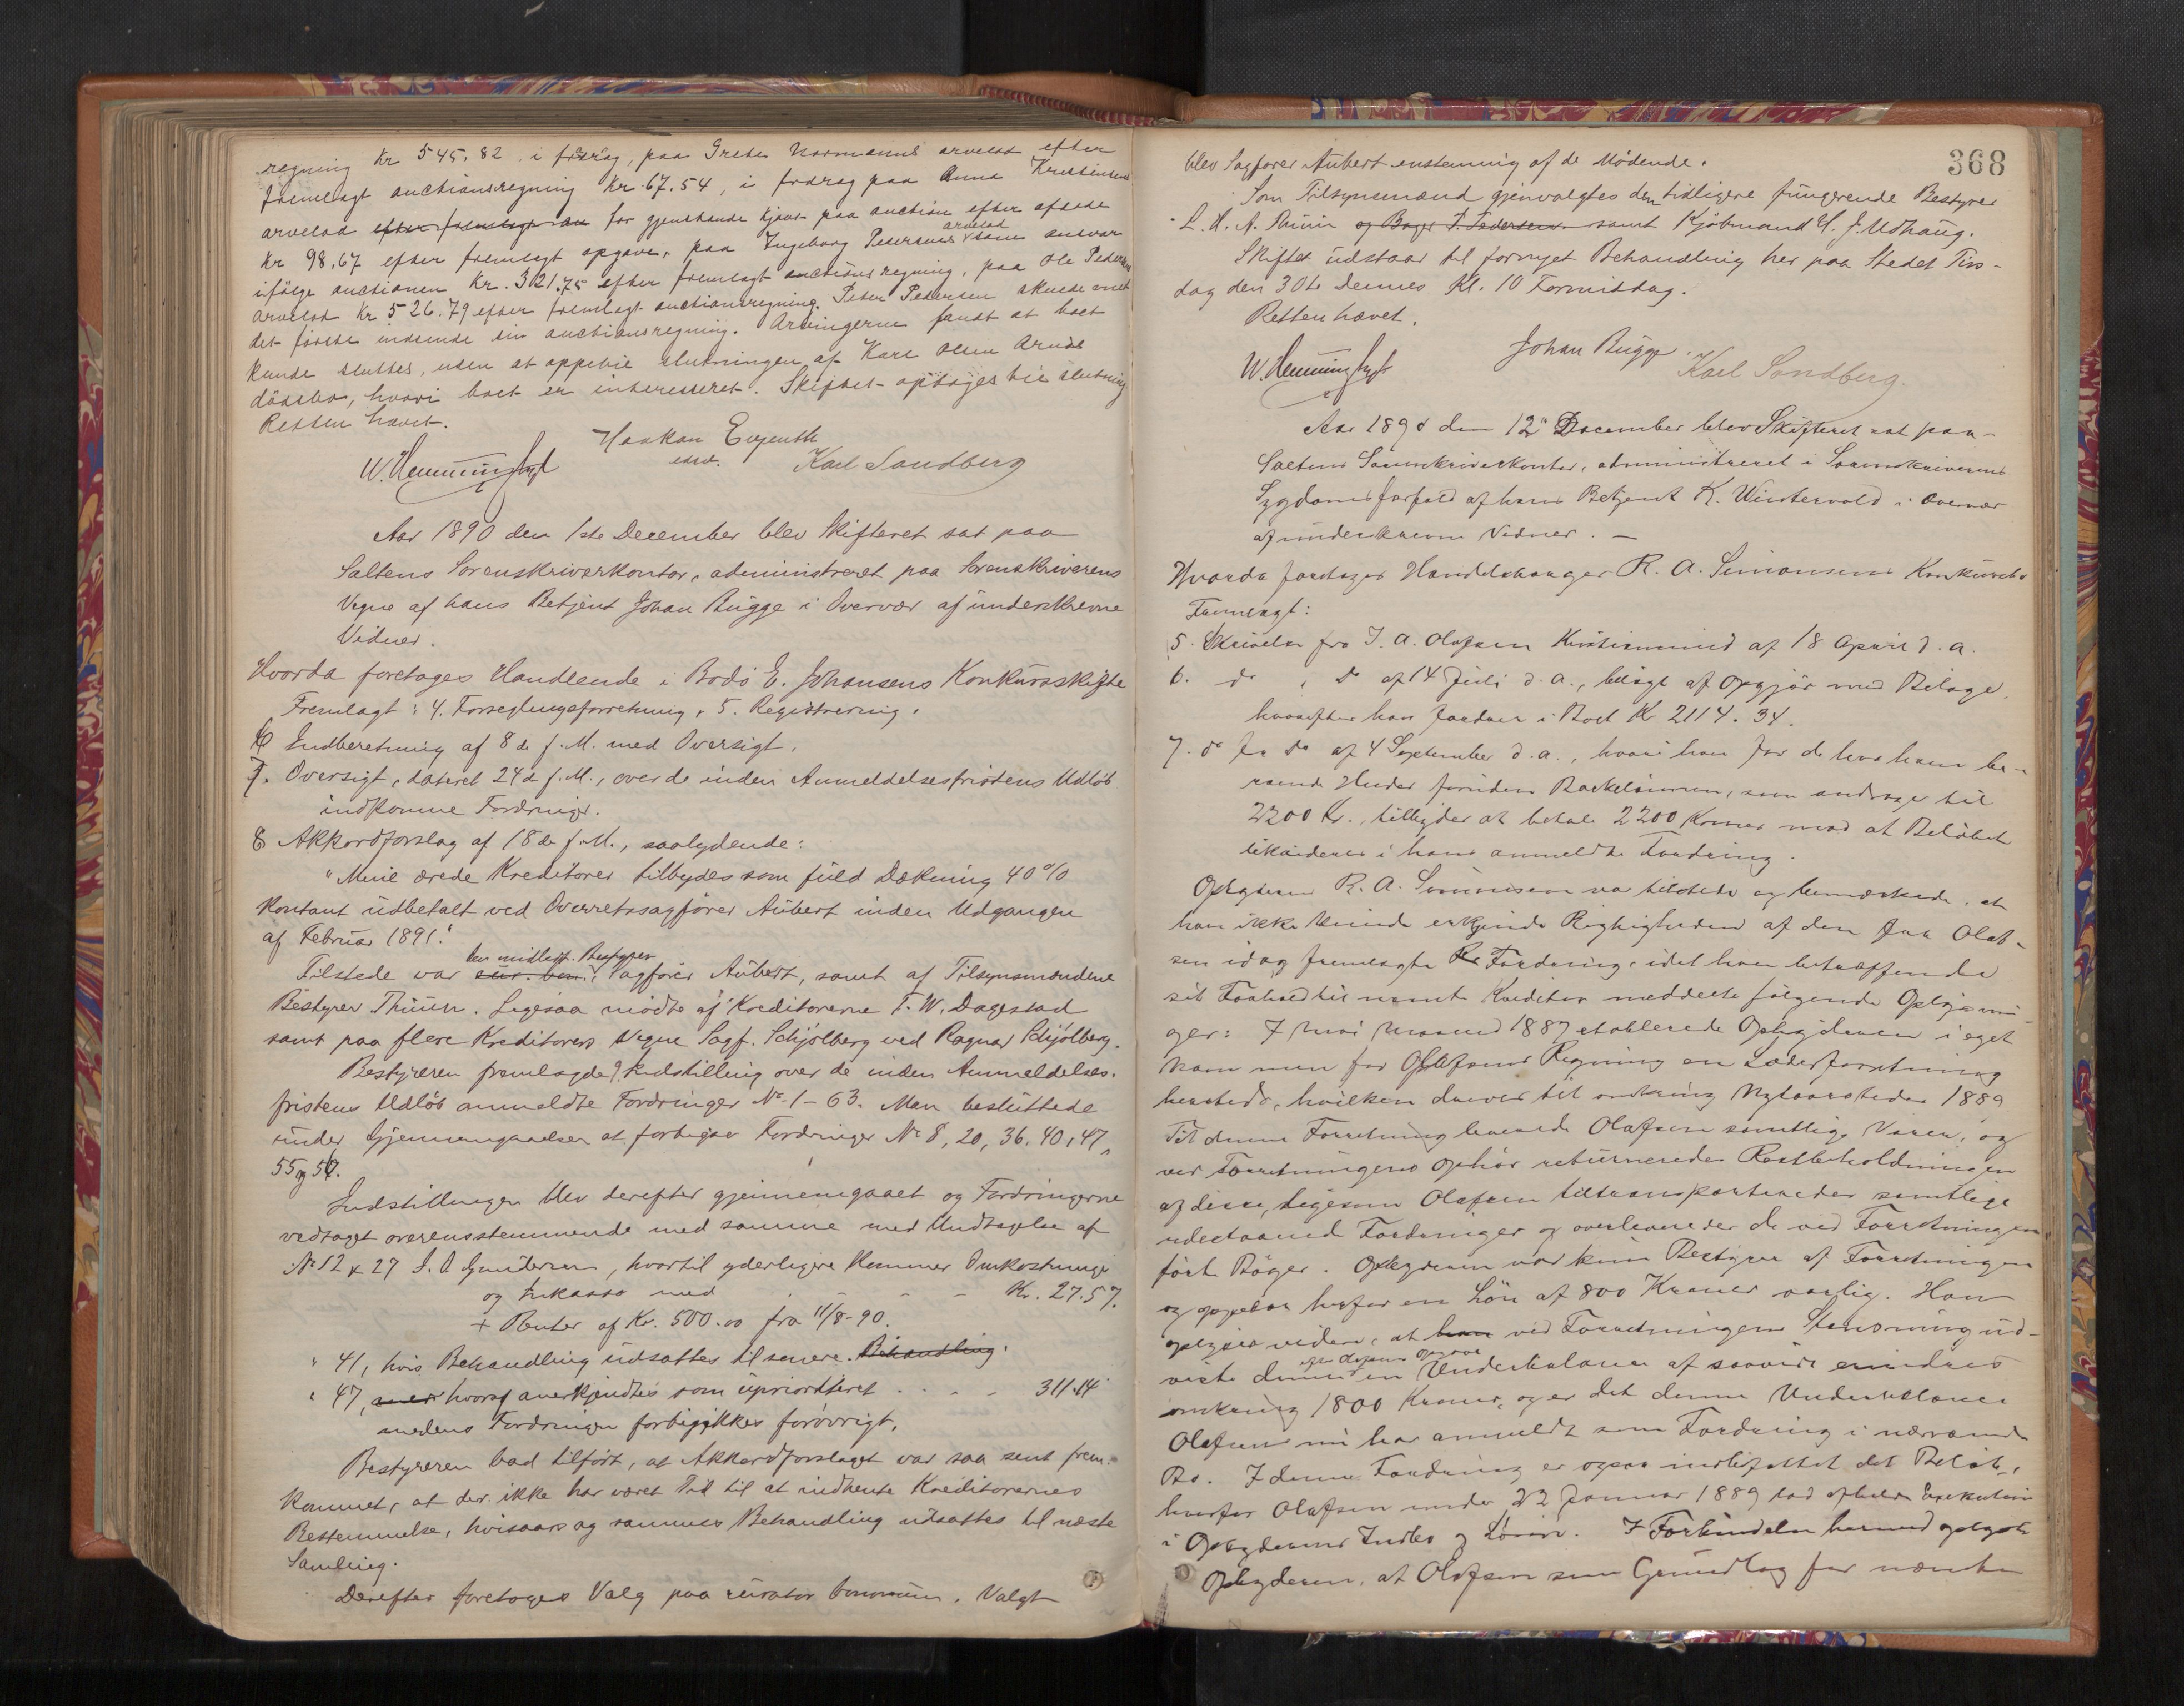 regning Kr 545.82, i fradrag, paa Grete Normanns arvelod efter
fremlagt auctionsregning Kr. 67.54, i fradrag paa Anna Kristensens
arvelod efter fremlagt for gjenstande kjøbt paa auction efter afdøde
Kr 98.67 efter fremlagt opgave, paa Ingeborg Petersens arvelod som ansvar
ifølge auctionen Kr. 321.75 efter fremlagt auctionsregning, paa Ole Pedersens
arvelod Kr 526.79 efter fremlagt auctionsregning. Peter Pedersen skulde med
det første indsende sin auctionsregning. Arvingerne fandt at boet
kunde sluttes, uden at oppebie slutningen af Karl Olsen Arnøs
dødsbo, hvori boet er interesseret. Skiftet optages til slutning
Retten hævet.
Haakon Evjenth
edsv.
W. Henningsen Karl Sandberg
Aar 1890 den 1ste December blev Skifteret sat paa
Saltens Sorenskriverkontor, administreret paa Sorenskriverens
Vegne af hans Betjent Johan Bugge i Overvær af underskrevne
Vidner.
Hvorda foretoges Handlende i Bodø E. Johansens Konkursskifte
Fremlagt: 4. Forseglingsforretning, 5. Registrering.
6 Indberetning af 8de f. M. med Oversigt.
7. Oversigt, dateret 24d f. M., over de inden Anmeldelsesfristens Udløb
indkomne Fordringer.
8 Akkordforslag af 18de f. M., saalydende:
"Mine ærede Kreditorer tilbydes som fuld Dækning 40 %
kontant udbetalt ved Overretssagfører Aubert inden Udgangen
af Februar 1891."
den midlert. Bestyrer
Tilstede var cur. bon. Sagfører Aubert, samt af Tilsynsmændene
Bestyrer Thuun. Ligesaa mødte af Kreditorerne T. W. Dagestad
samt paa flere Kreditorers Vegne Sagf. Schjølberg ved Ragnar Schjølberg.
Bestyreren fremlagde 9. Indstilling over de inden Anmeldelses-
fristens Udløb anmeldte Fordringer No 1-63. Man besluttede
under Gjennemgaaelsen at forbigaa Fordringer No 8, 20, 36, 40, 47,
55 og 57.
Indstillingen blev derefter gjennemgaaet og Fordringerne
vedtaget overensstemmende med samme med Undtagelse af
No 12 & 27 Gundersen, hvortil yderligere kommer Omkostninger
og Inkasso med - - - Kr. 27.57.
+ Renter af Kr. 500.00 fra 11/8-90.
" 41, hvis Behandling udsattes til senere. Behandling.
" 47, hvoraf anerkjendtes som uprioriteret . . . 311.14
medens Fordringen forbigikkes forøvrigt.
Bestyreren bad tilført, at Akkordforslaget var saa sent frem-
kommet, at der ikke har været Tid til at indhente Kreditorernes
Bestemmelse, hvisaars og sammes Behandling udsattes til næste
Samling.
Derefter foretoges Valg paa curator bonorum. Valgt
368
blev Sagfører Aubert enstemmig af de Mødende.
Som Tilsynsmænd gjenvalgtes den tidligere fungerende Bestyrer
L. H. A. Thuun og Bager F. Pedersen samt Kjøbmand H. J. Udhaug.
Skiftet udstaar til fornyet Behandling her paa Stedet Tirs-
dag den 30te Dennes Kl. 10 Formiddag.
Retten hævet.
W. Henningsen Johan Bugge. Karl Sandberg.
Aar 1890 den 12te December blev Skifteret sat paa
Saltens Sorenskriverkontor, administreret i Sorenskriverens
Sygdomsforfald af hans Betjent K. Wintervold i Overvær
af underskrevne Vidner. —
Hvorda foretoges Handelsborger R. A. Simonsens Konkursbo
Fremlagt:
5. Skrivelse fra I. A. Olafsen Kristiansund af 18 April d. a.
6. do , do af 14 Juli d. a., bilagt af Opgjør med Bilage,
hvorefter han fordrer i Boet Kr 2114.34.
7. do fra do af 4 September d. a., hvori han for de hos ham be-
roende Huder foruden , som andrager til
2200 Kr., tilbyder at betale 2200 Kroner mod at Beløbet
likvideres i hans anmeldte Fordring.
Opbyderen R. A. Simonsen var tilstede og bemærkede, at
han ikke kunde erkjende Rigtigheden af den fra Olaf-
sen idag fremlagte Fordring, idet han betræffende
sit Forhold til nævnte Kreditor meddelte følgende Oplysnin-
ger: I Mai Maaned 1887 etablerede Opbyderen i eget
Navn men for Olafsens Regning en Læderforretning
hersteds, hvilken dreves til omkring Nytaarstider 1889
Til denne Forretning leverede Olafsen samtlige Varer, og
ved Forretningens Ophør returneredes Restbeholdningen
af disse, ligesom Olafsen tiltransporteredes samtlige
udestaaende Fordringer og overleveredes de ved Forretningen
ført Bøger. Opbyderen var kun Bestyrer af Forretningen
og oppebar herfor en Løn af 800 Kroner aarlig. Han
oplyser videre, at ved Forretningens Standsning ud-
efter Olafsens Opgave
viste denne en Underbalance af saavidt erindres
omkring 1800 Kroner, og er det denne Underbalance
Olafsen nu har anmeldt som Fordring i nærværende
Bo. I denne Fordring er ogsaa indbefattet det Beløb,
hvorfor Olafsen under 22 Januar 1889 lod afholde Exekution
i Opbyderens Indbo og Løsøre. I Forbindelse hermed oplyste
Opbyderen, at Olafsen som Grundlag for nævnte